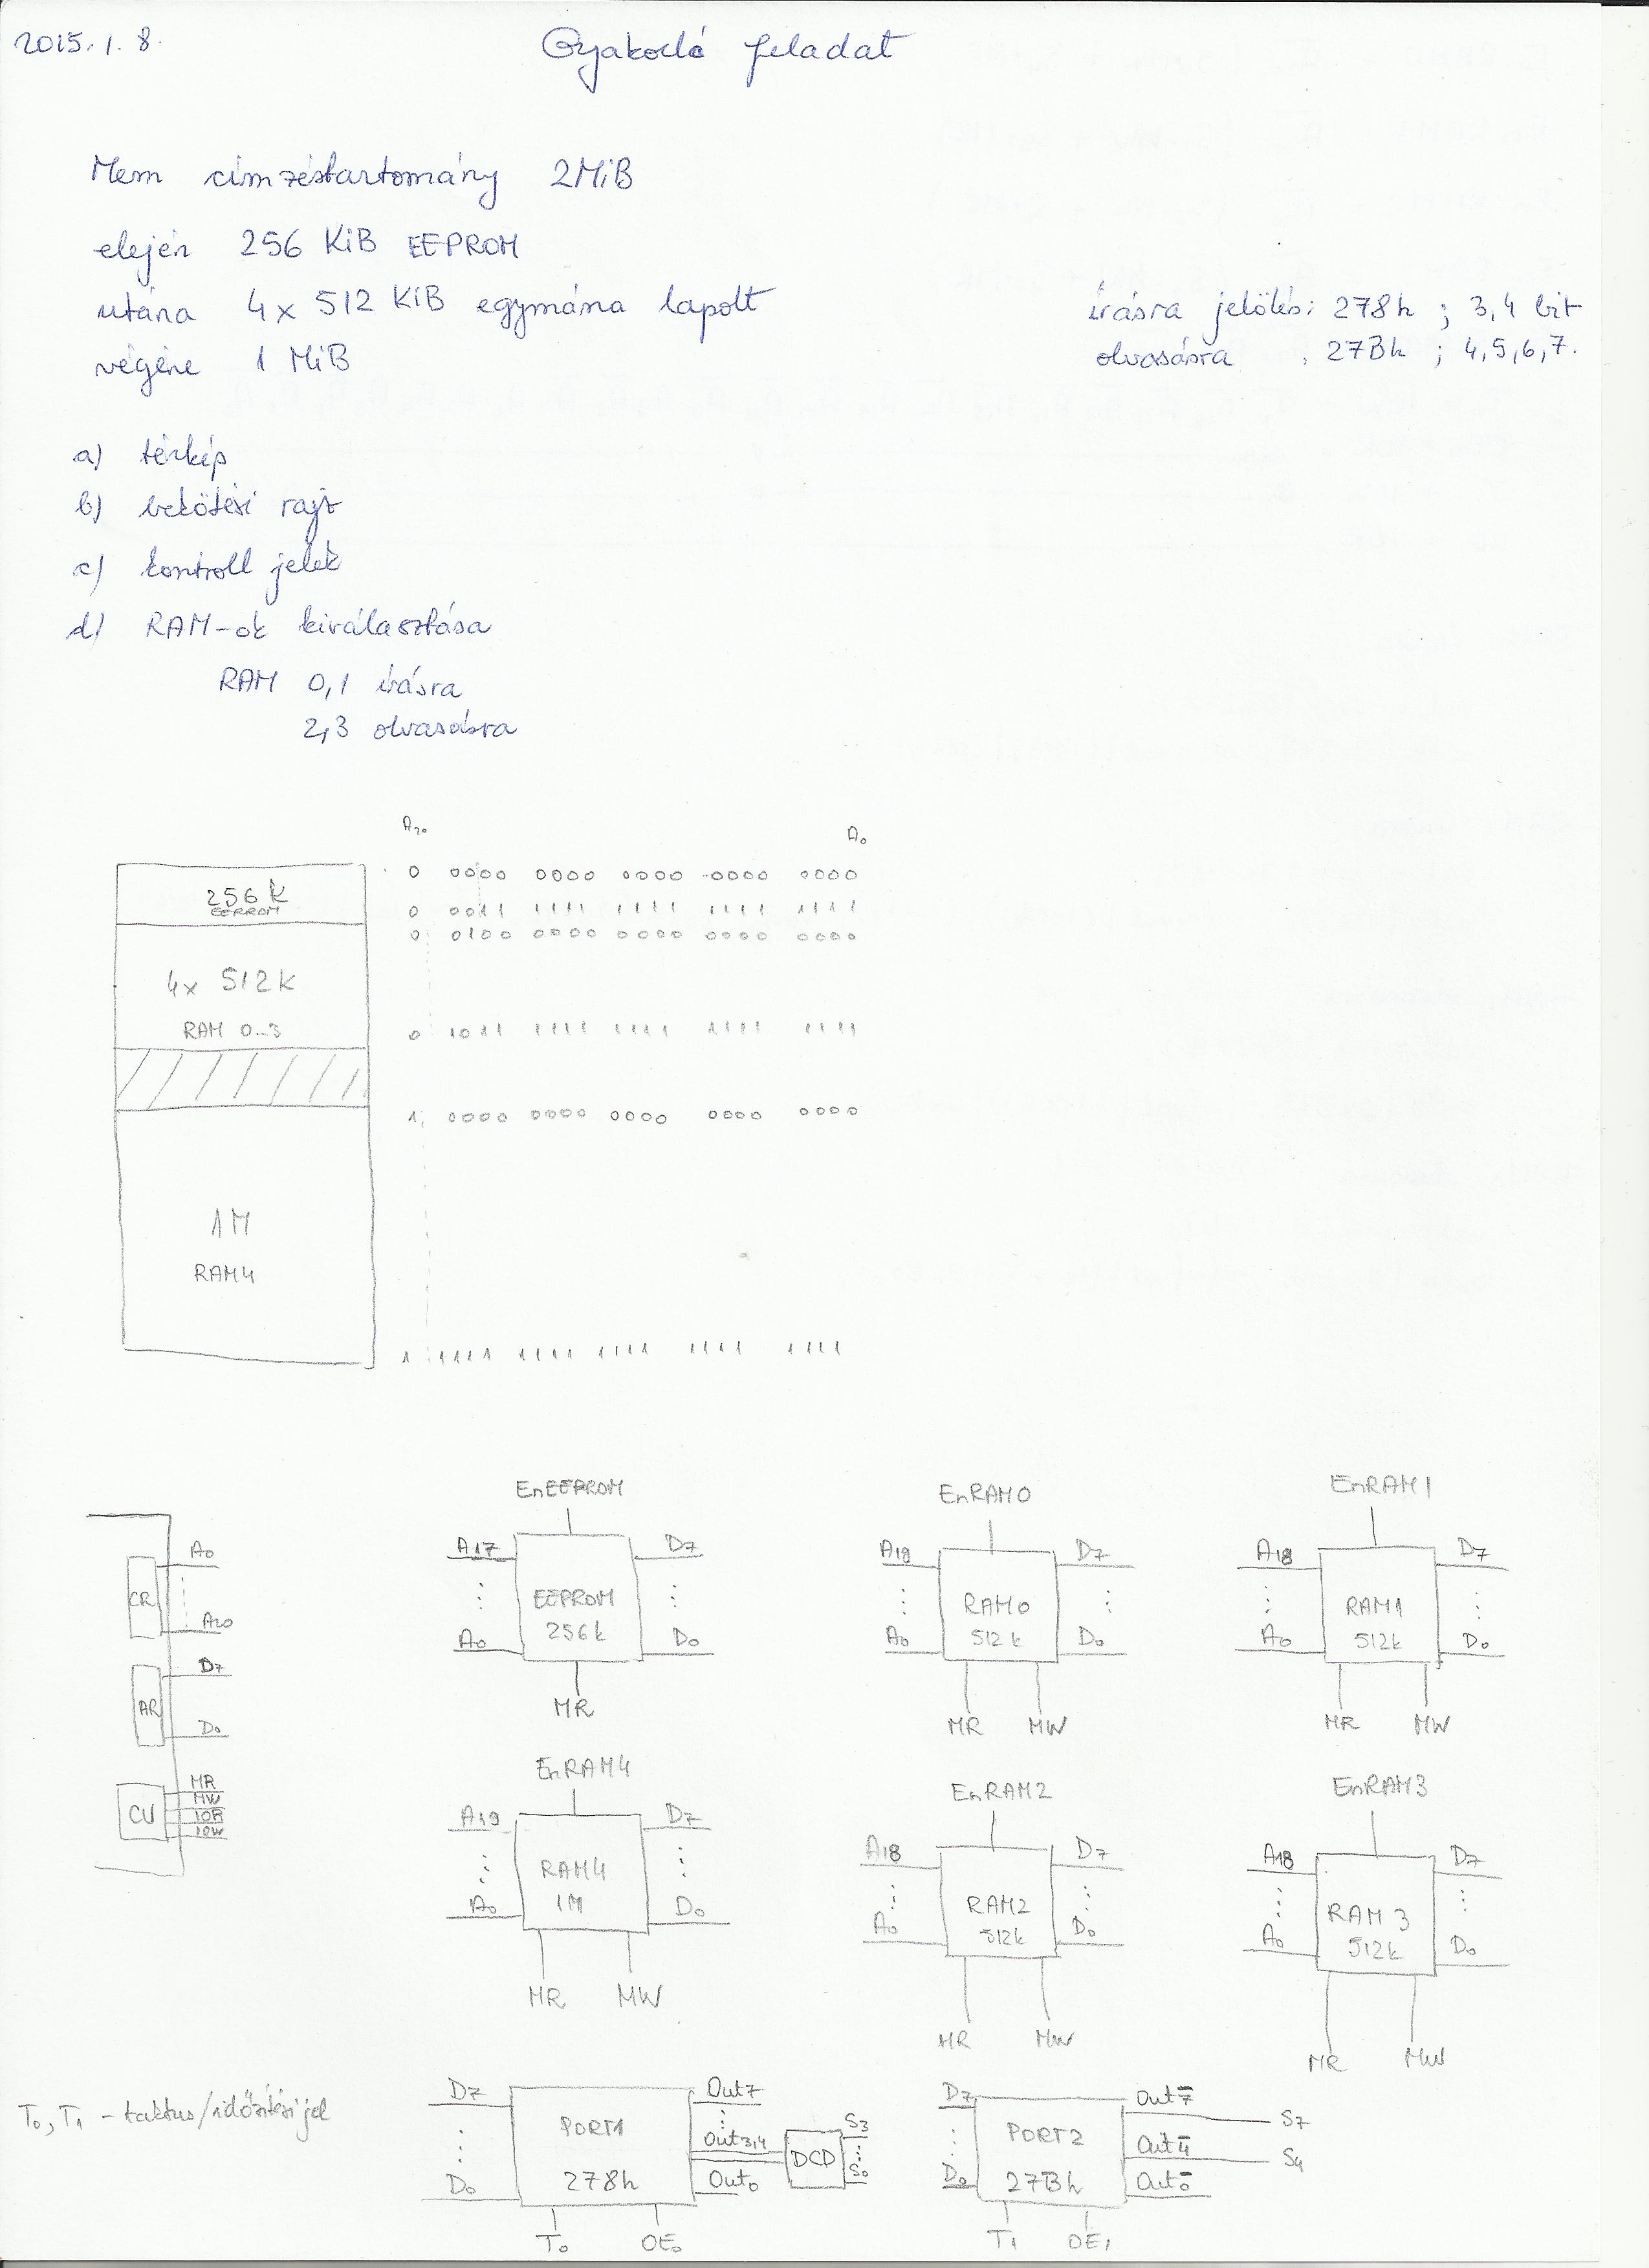 2015. 1. 8.
Gyakorló feladat
Mem címzéstartomány 2MiB
elején 256 KiB EEPROM
utána 4x 512 KiB egymásra lapolt
végére 1 MiB
írásra jelölés: 278h ; 3,4 bit
olvasásra : 27Bh ; 4,5,6,7.
a) térkép
b) bekötési rajz
c) kontroll jelek
d) RAM-ok kiválasztása
RAM 0,1 írásra
2,3 olvasásra
A20 A0
0 0000 0000 0000 0000 0000
256k
EEPROM
0 0011 1111 1111 1111 1111
0 0100 0000 0000 0000 0000
4x 512k
RAM 0..3
0 1011 1111 1111 1111 1111
1 0000 0000 0000 0000 0000
1M
RAM4
1 1111 1111 1111 1111 1111
CR
A0
A20
AR
D7
D0
CU
MR
MW
IOR
IOW
EnEEPROM
A17 D7
EEPROM
256k
A0 D0
MR
EnRAM0
A18 D7
RAM0
512k
A0 D0
MR MW
EnRAM1
A18 D7
RAM1
512k
A0 D0
MR MW
EnRAM4
A19 D7
RAM4
1M
A0 D0
MR MW
EnRAM2
A18 D7
RAM2
512k
A0 D0
MR MW
EnRAM3
A18 D7
RAM3
512k
A0 D0
MR MW
T0, T1 - taktus/időzítési jel
D7 Out7
PORT1
Out3,4 DCD S3
S0
278h
D0 Out0
T0 OE0
D7 Out7 S7
PORT2
Out4 S4
27Bh
D0 Out0
T1 OE1